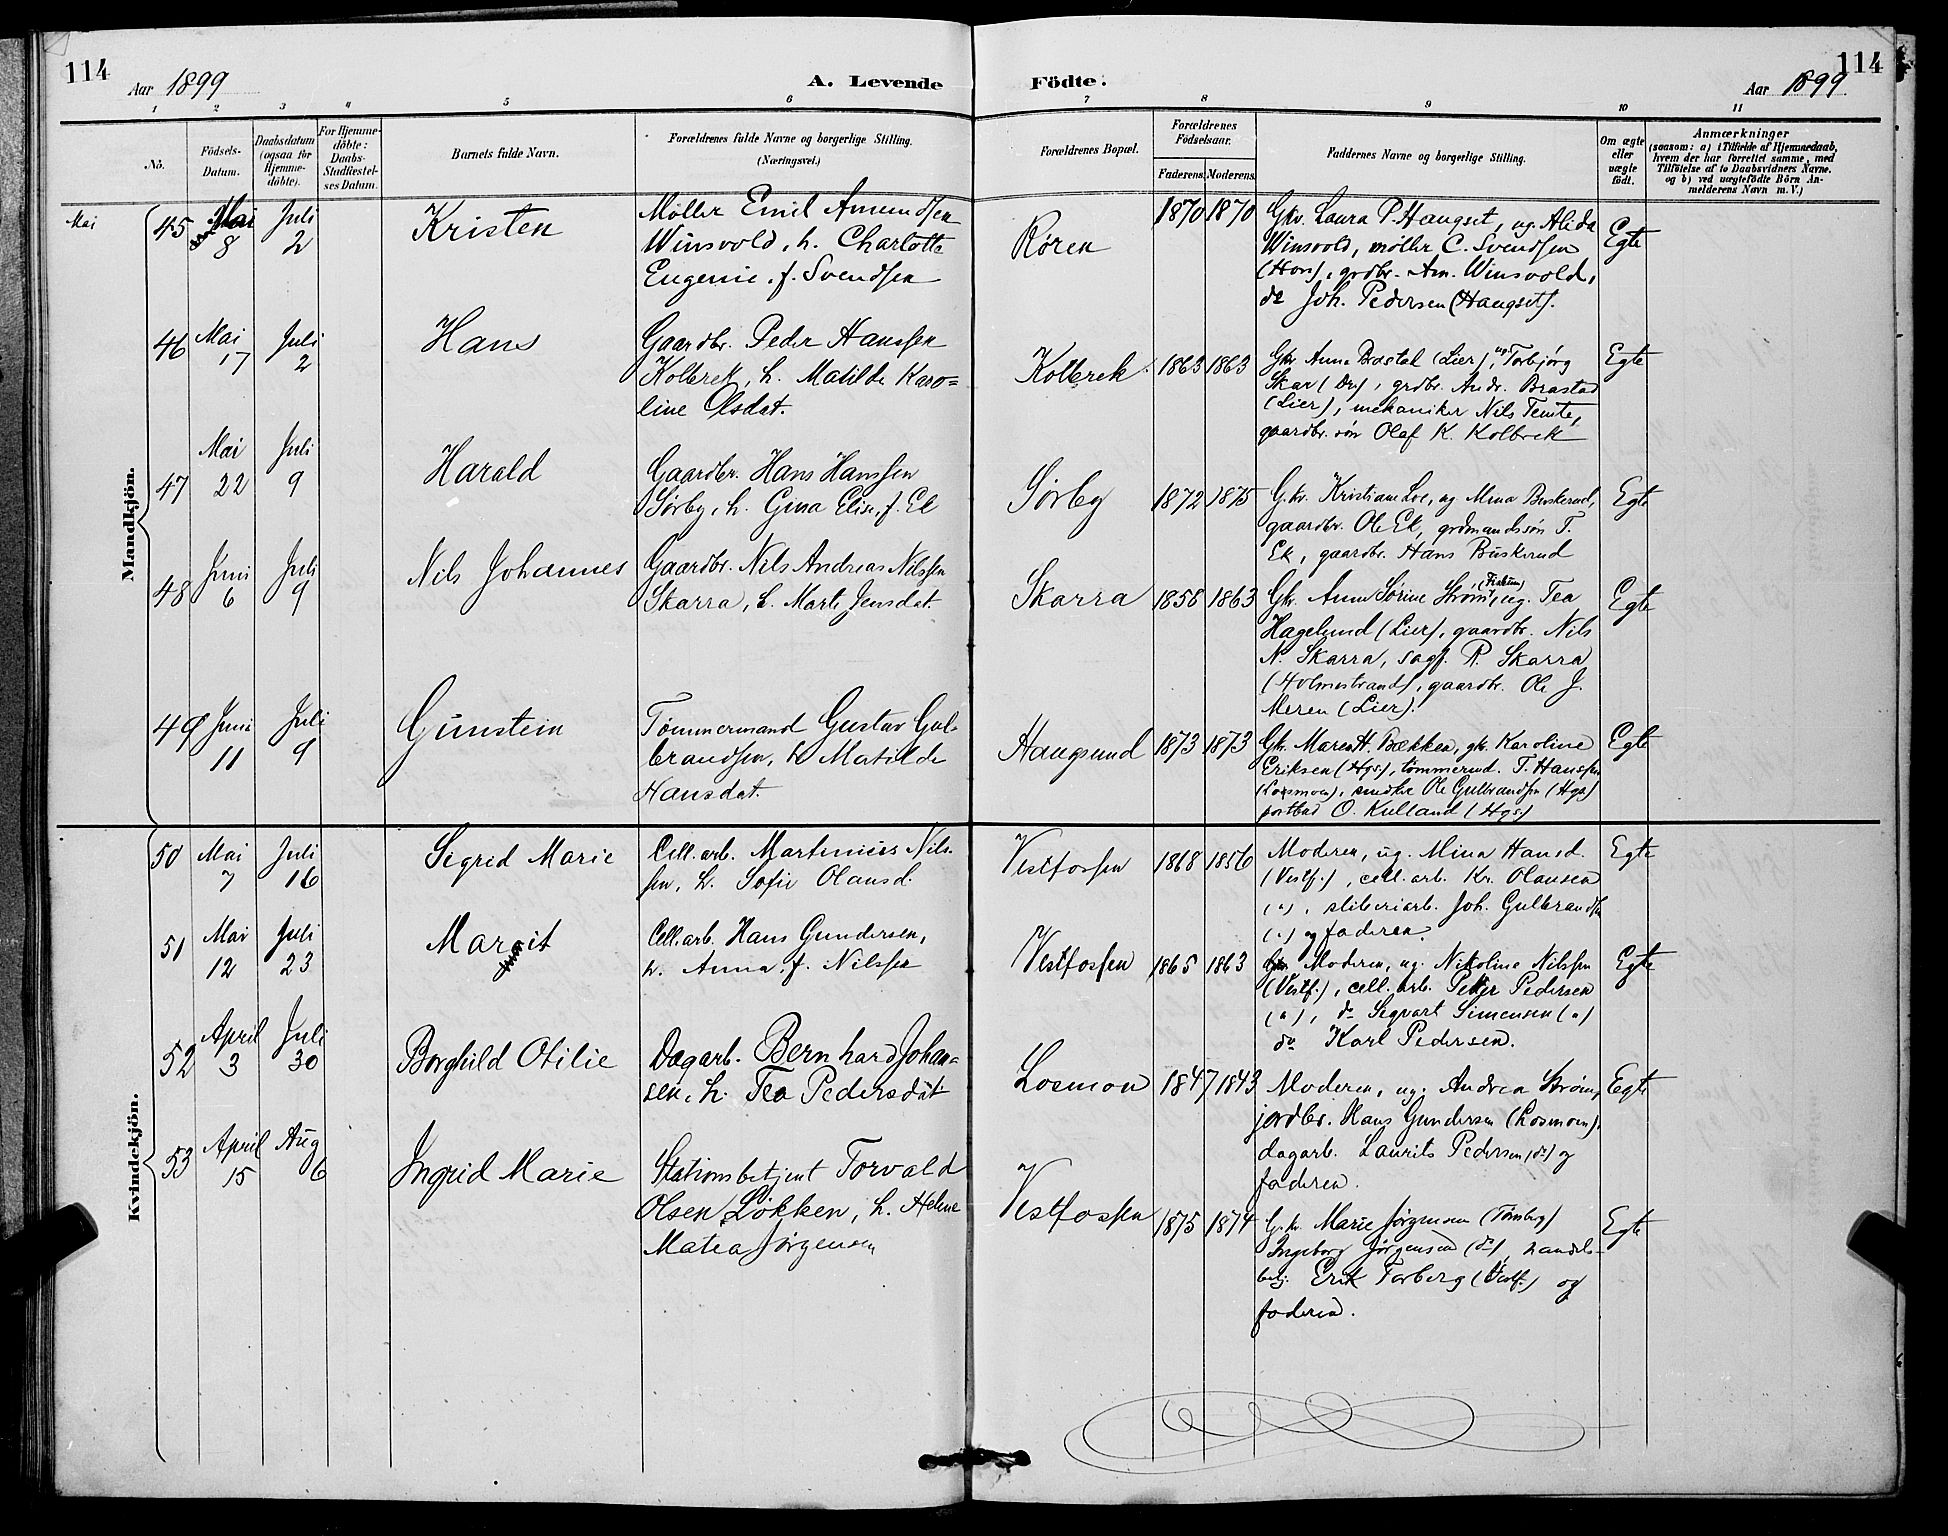 114
Aar 1899
A. Levende
Födte.
Aar 1899
114
1 2 3 4 5 6 7 8 9 10 11
No.
Födsels-
Datum.
Daabsdatum
(ogsaa for
Hjemme-
döbte).
For Hjemme-
döbte:
Daabs-
Stadfestel-
ses Datum.
Barnets fulde Navn.
Forældrenes fulde Navne og borgerlige Stilling.
(Næringsvei.)
Forældrenes Bopæl.
Forældrenes
Födselsaar.
Faderens Moderens
Faddernes Navne og borgerlige Stilling.
Om ægte
eller
uægte
födt.
Anmærkninger
(saasom: a) i Tilfælde af Hjemmedaab,
hvem der har forrettet samme, med
Tilföielse af to Daabsvidners Navne.
og b) ved uægtefödte Börn An-
melderens Navn m. V.)
Mandkjön.
Mai
45
Mai
8
Juli
2
Kristen
Møller Emil Amundsen
Winsvold, h. Charlotte
Eugenie, f. Svendsen
Røren
1870 1870
Gkv. Laura P. Haugset, ug. Alida
Winsvold, møller C. Svendsen
(Hov), grdbr. Am. Winsvold,
do Joh. Pedersen (Haugset).
Egte
46
Mai
17
Juli
2
Hans
Gaardbr. Peder Hanssen
Kolbrek, h. Matilde Karo=
line Olsdat.
Kolbrek
1863 1863
Gkv. Anna Brastad (Lier), ug. Torbjørg
Skar (Dr.), grdbr. Andr. Brastad
(Lier), mekaniker Nils Temte,
gaardbr. søn Olaf K. Kolbrek
Egte
47
Mai
22
Juli
9
Harald
Gaardbr. Hans Hanssen
Sørby, h. Gina Elise, f. Ek
Sørby
1872 1875
Gkv. Kristiane Loe, ug Mina Buskerud,
gaardbr. Ole Ek, grdmandssøn T.
Ek, gaardbr. Hans Buskerud
Egte
48
Juni
6
Juli
9
Nils Johannes
Gaardbr. Nils Andreas Nilssen
Skarra, h. Marte Jensdat.
Skarra
1858 1863
Gkv. Anne Sørine Strøm (Fiskum), ug. Tea
Hagelund (Lier), gaardbr. Nils
N. Skarra, sagf. R. Skarra
(Holmestrand), gaardbr. Ole J.
Meren (Lier).
Egte
49
Juni
11
Juli
9
Gunstein
Tømmermand Gustav Gul-
brandsen, h. Matilde
Hansdat.
Haugsund
1873 1873
Gkv. Maren H. Bækken, gkv. Karoline
Eriksen (Hgs.), tømmermd. T. Hanssen
(Losmoen), smedkr Ole Gulbrandsen (Hgs.)
postbud O. Kulland (Hgs.)
Egte
Kvindekjön.
50
Mai
7
Juli
16
Sigrid Marie
Cell. arb. Martinius Nils-
sen, h. Sofie Olausd.
Vestfossen
1868 1856
Moderen, ug. Mina Hansd.
(Vestf.), cell. arb. Kr. Olausen
(") , sliberiarb. Joh. Gulbrandsen
(") og faderen.
Egte
51
Mai
12
Juli
23
Margit
Cell. arb. Hans Gundersen,
h. Anna, f. Nilssen
Vestfossen
1865 1863
Moderen, ug. Nikoline Nilssen
(Vestf.), cell. arb. Peder Pedersen
("), do Sigvart Simensen (")
do Karl Pedersen.
Egte
52
April
3
Juli
30
Borghild Otilie
Dagarb. Bernhard Johan=
sen, h. Tea Pedersdat
Losmoen
1847 1843
Moderen, ug. Andrea Strøm,
jordbr. Hans Gundersen (Losmoen),
dagarb. Laurits Pedersen (do) og
faderen.
Egte
53
April
15
Aug
6
Ingrid Marie
Stationsbetjent Torvald
Olsen Løkken, h. Helene
Matea Jørgensen
Vestfossen
1875 1874
Gkv. Marie Jørgensen (Tønsberg)
Ingeborg Jørgensen (do), handels-
betj. Erik Forberg (Vestf.) og
faderen.
Egte